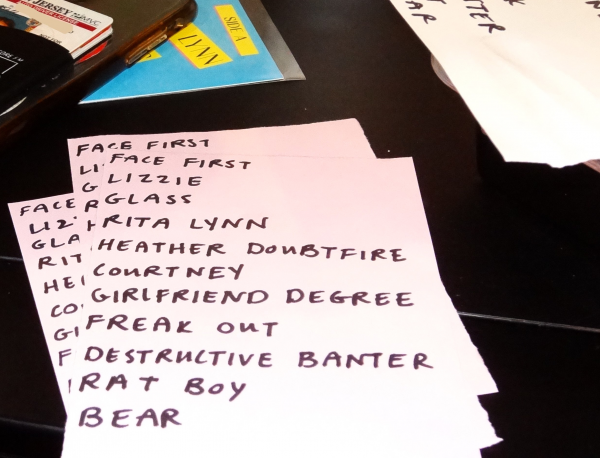 JERSEY MVC
SIDE A
LYNN
TTER
AR
FACE FIRST
LI
G
R
H
FACE
LIZ
GLA
RIT
HE
CO
GI
F
FACE FIRST
LIZZIE
GLASS
RITA LYNN
HEATHER DOUBTFIRE
COURTNEY
GIRLFRIEND DEGREE
FREAK OUT
DESTRUCTIVE BANTER
RAT BOY
BEAR